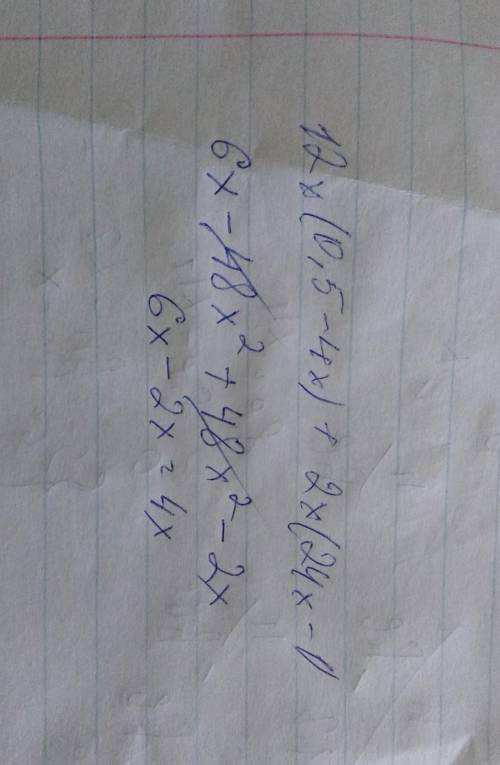 12x(0,5-4x) + 2x(24x-1)
6x-48x²+48x²-2x
6x-2x=4x